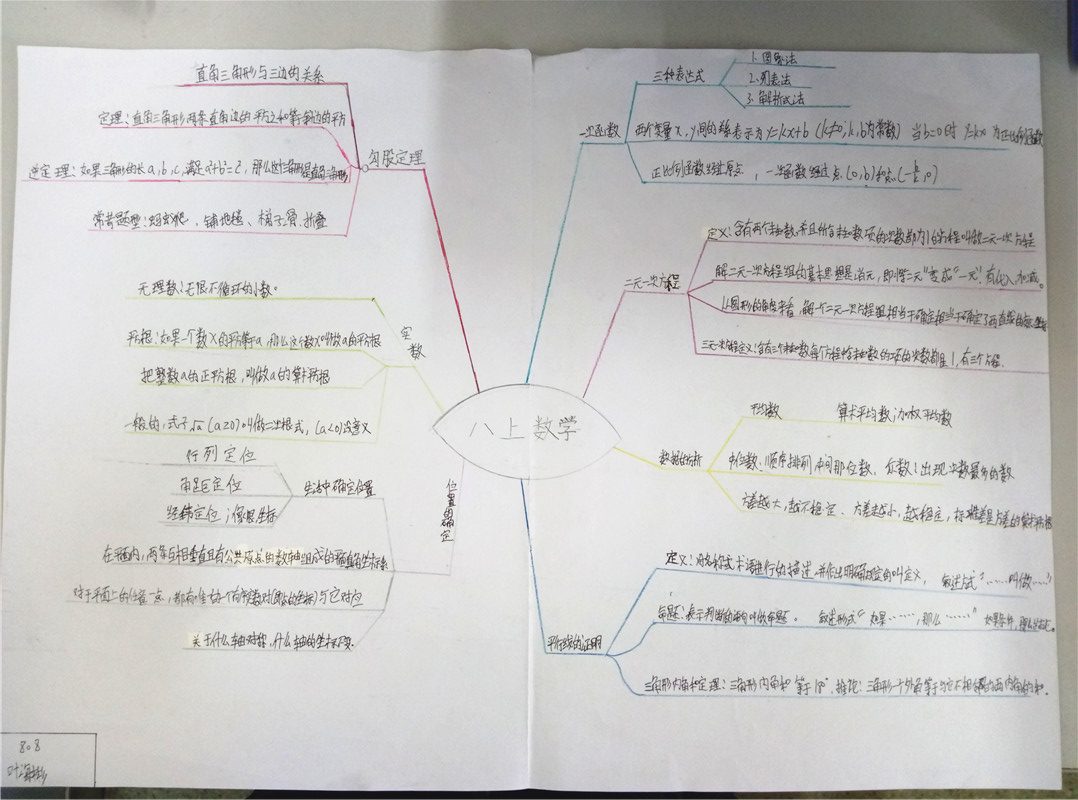 八上数学
直角三角形与三边的关系
定理：直角三角形两条直角边的平方之和等斜边的平方
逆定理：如果三角形的长a,b,c,满足a²+b²=c²，那么这个三角形是直角三角形
常考题型：蚂蚁爬、铺地毯、梯子滑、折叠
勾股定理
无理数：无限不循环的小数。
平方根：如果一个数X的平方等于a，那么这个数X叫做a的平方根
把整数a的正平方根，叫做a的算术平方根
一般的，式子√a（a≥0）叫做二次根式，（a<0）没意义
实数
行列定位
角距定位
经纬定位；
生活中确定位置
在平面内，两条互相垂直且有公共原点的数轴组成的平面直角坐标系
对于平面上的任意一点，都有唯一的一个有序数对（即点的坐标）与它对应
关于什么轴对称，什么轴的坐标不变．
位置的确定
三种表达式
1.图象法
2.列表法
3.解析式法
一次函数
两个变量x，y间的 表示为y=kx+b（k≠0，k，b为常数） 当b=0时 y=kx 为正比例函数
正比例函数经过原点，一次函数经过点（0，b）和点（-b/k，0）
二元一次方程
定义：含有两个未知数，并且所含未知数项的次数都为1的方程叫做二元一次方程
解二元一次方程组的基本思想是消元，即将"二元"变成"一元"．有代入，加减。
从图形的角度来看，解一个二元一次方程组相当于确定
三元一次方程定义：含有三个未知数每个方程含未知数的项的次数都是1，有三个方程．
数据的分析
平均数 算术平均数；加权平均数
中位数：顺序排列中间那位数、众数：出现次数最多的数
方差越大，越不稳定、方差越小，越稳定，标准差是方差的算术平方根
平行线的证明
定义：对名称或术语进行的描述，并作出明确规定的叫定义， 叙述方式"……叫做……"
命题：表示判断的语句叫做命题。 叙述形式"如果……，那么……"
三角形内角和定理：三角形内角和等于180°．推论：三角形一个外角等于与它不相邻的两内角的和．
808